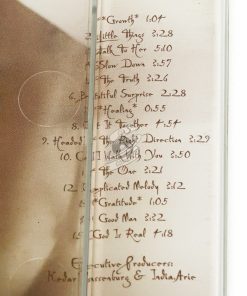 *Growth* 1:04
Little Things 3:28
Talk To Her 5:10
Slow Down 3:57
The Truth 3:26
6. Beautiful Surprise 2:28
*Healing* 0:55
8. Get It Together 4:54
9. Headed In The Right Direction 3:29
10. Can I Walk With You 3:50
The One 3:21
12. Complicated Melody 3:12
*Gratitude* 1:05
Good Man 3:32
15. God Is Real 4:18
Executive Producers:
Kedar Massenburg & India.Arie